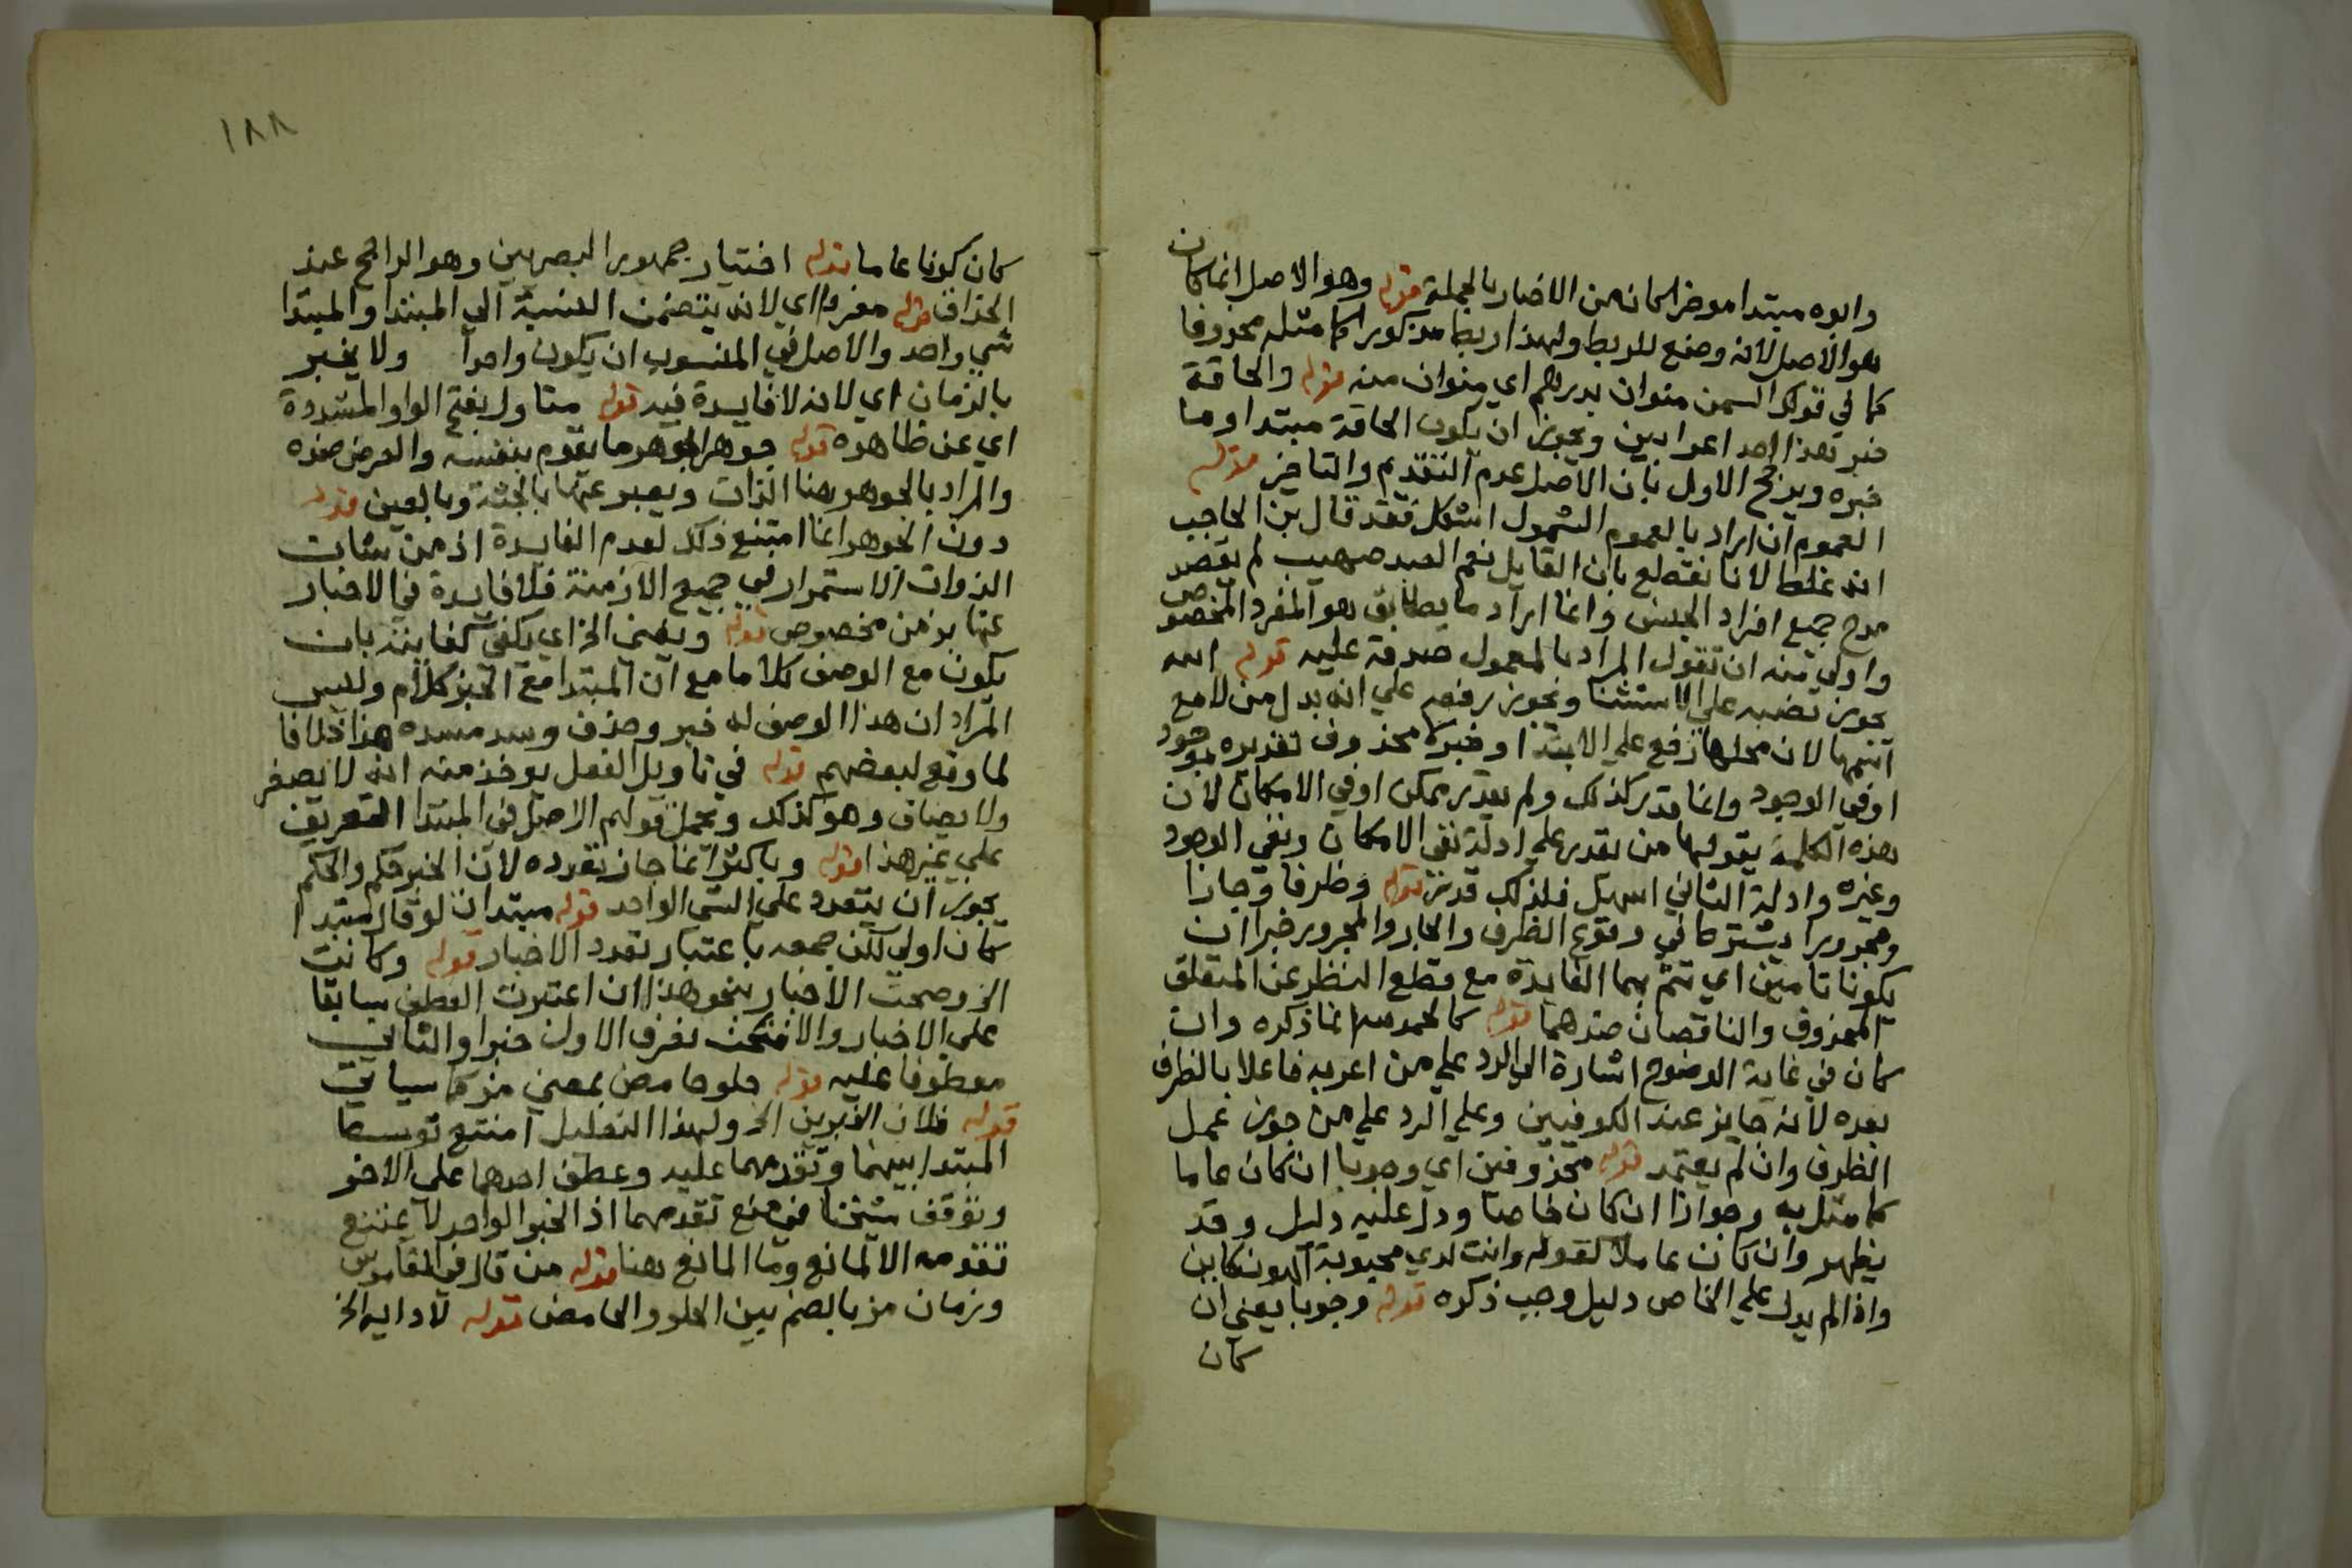 وابوه مبتدا موخر الكانه من الاخبار بالجملة قوله وهو الاصل انما كان
هو الاصل لانه وضع للربط ولهذا ربط مذكورا كما مثله محذوفا
كما في قولك السمن منوان بدرهم اي منوان منه قوله والحاقة
خبر هذا احد اعرابين ويجوز ان يكون الحاقة مبتدا وما
خبره ويرجح الاول بان الاصل عدم التقديم والتاخير قوله
العموم ان اراد بالعموم الشمول اشكل فقد قال بن الحاجب
انه غلط لانا نقطع بان القايل نعم العبد صهيب لم يقصد
مدح جميع افراد الجنس وانما اراد ما يطابق هو المفرد المخصوص
واولي منه ان تقول المراد بالمعمول صدقه عليه قوله الله
يجوز نصبه علي الاستثنا ويجوز رفعه علي انه بدل من لا مع
اسمها لان محلها رفع علي الابتدا وخبره محذوف تقديره موجود
او في الوجود وانما قدر كذلك ولم يقدر ممكن او في الامكان لان
هذه الكلمة يقولها من يقدر علي ادلة نفي الامكان ونفي الوجود
وغيره وادلة الثاني اسهل فلذلك قدر قوله وظرفا وجارا
ومجرورا يشترط في وقوع الظرف والجار والمجرور خبرا ان
يكونا تامين اي تتم بهما الفايدة مع قطع النظر عن المتعلق
المحذوف والناقصان ضدهما قوله كالحمد لله انما ذكره وان
كان في غاية الوضوح اشارة الي الرد علي من اعربه فاعلا بالظرف
بعده لانه جايز عند الكوفيين وعلي الرد علي من جوز عمل
الظرف وان لم يعتمد قوله محذوفين اي وجوبا ان كان عاما
كما مثل به وجوازا ان كان خاصا ودل عليه دليل وقد
يظهر وان كان عاملا لقوله وانت لدي محبوبة الهون كاين
واذا لم يدل علي الخاص دليل وجب ذكره قوله وجوبا يعني ان
كان
١٨٨
كان كونا عاما قوله اختيار جمهور البصريين وهو الراجح عند
الحذاق قوله مفردا اي لانه يتضمن النسبة الي المبتدا والمبتدا
شي واحد والاصل في المنسوب ان يكون واحدا ولا يخبر
بالزمان اي لانه لا فايدة فيه قوله متاول بفتح الواو المشددة
اي عن ظاهره قوله جوهر الجوهر ما يقوم بنفسه والعرض ضده
والمراد بالجوهر هنا الذات ويعبر عنها بالجثة وبالعين قوله
دون الجوهر انما امتنع ذلك لعدم الفايدة اذ من شان
الذوات الاستمرار في جميع الازمنة فلا فايدة في الاخبار
عنها بزمن مخصوص قوله ويغني الخ اي يكفي كفايته بان
يكون مع الوصف كلاما مع ان المبتدا مع الخبر كلام وليس
المراد ان هذا الوصف له خبر وحذف وسد مسده هذا خلافا
لما وقع لبعضهم قوله في تاويل الفعل يوخذ منه انه لا يصغر
ولا يضاف وهو كذلك ويحمل قولهم الاصل في المبتدا التعريف
علي غير هذا قوله وباكثر انما جاز تعدده لان الخبر حكم والحكم
يجوز ان يتعدد علي الشي الواحد قوله مبتدان لو قال مبتدا
كان اولي لكن جمعه باعتبار تعدد الاخبار قوله وكانت
الخ وصحت الاخبار بنحو هذا ان اعتبرت العطف سابقا
علي الاخبار والا فتحت تعرف الاول خبرا والثاني
معطوفا عليه قوله حلو حامض بمعني مز كما سياتي
قوله فلان الخبرين الخ ولهذا التعليل امتنع توسط
المبتدا بينهما وتقدمهما عليه وعطف احدهما علي الاخر
وتوقف شيخنا في منع تقدمهما اذ الخبر الواحد لا يمتنع
تقدمه الا لمانع وما المانع هنا قوله من قال في القاموس
ورمان مز بالضم بين الحلو والحامض قوله لادايه الخ